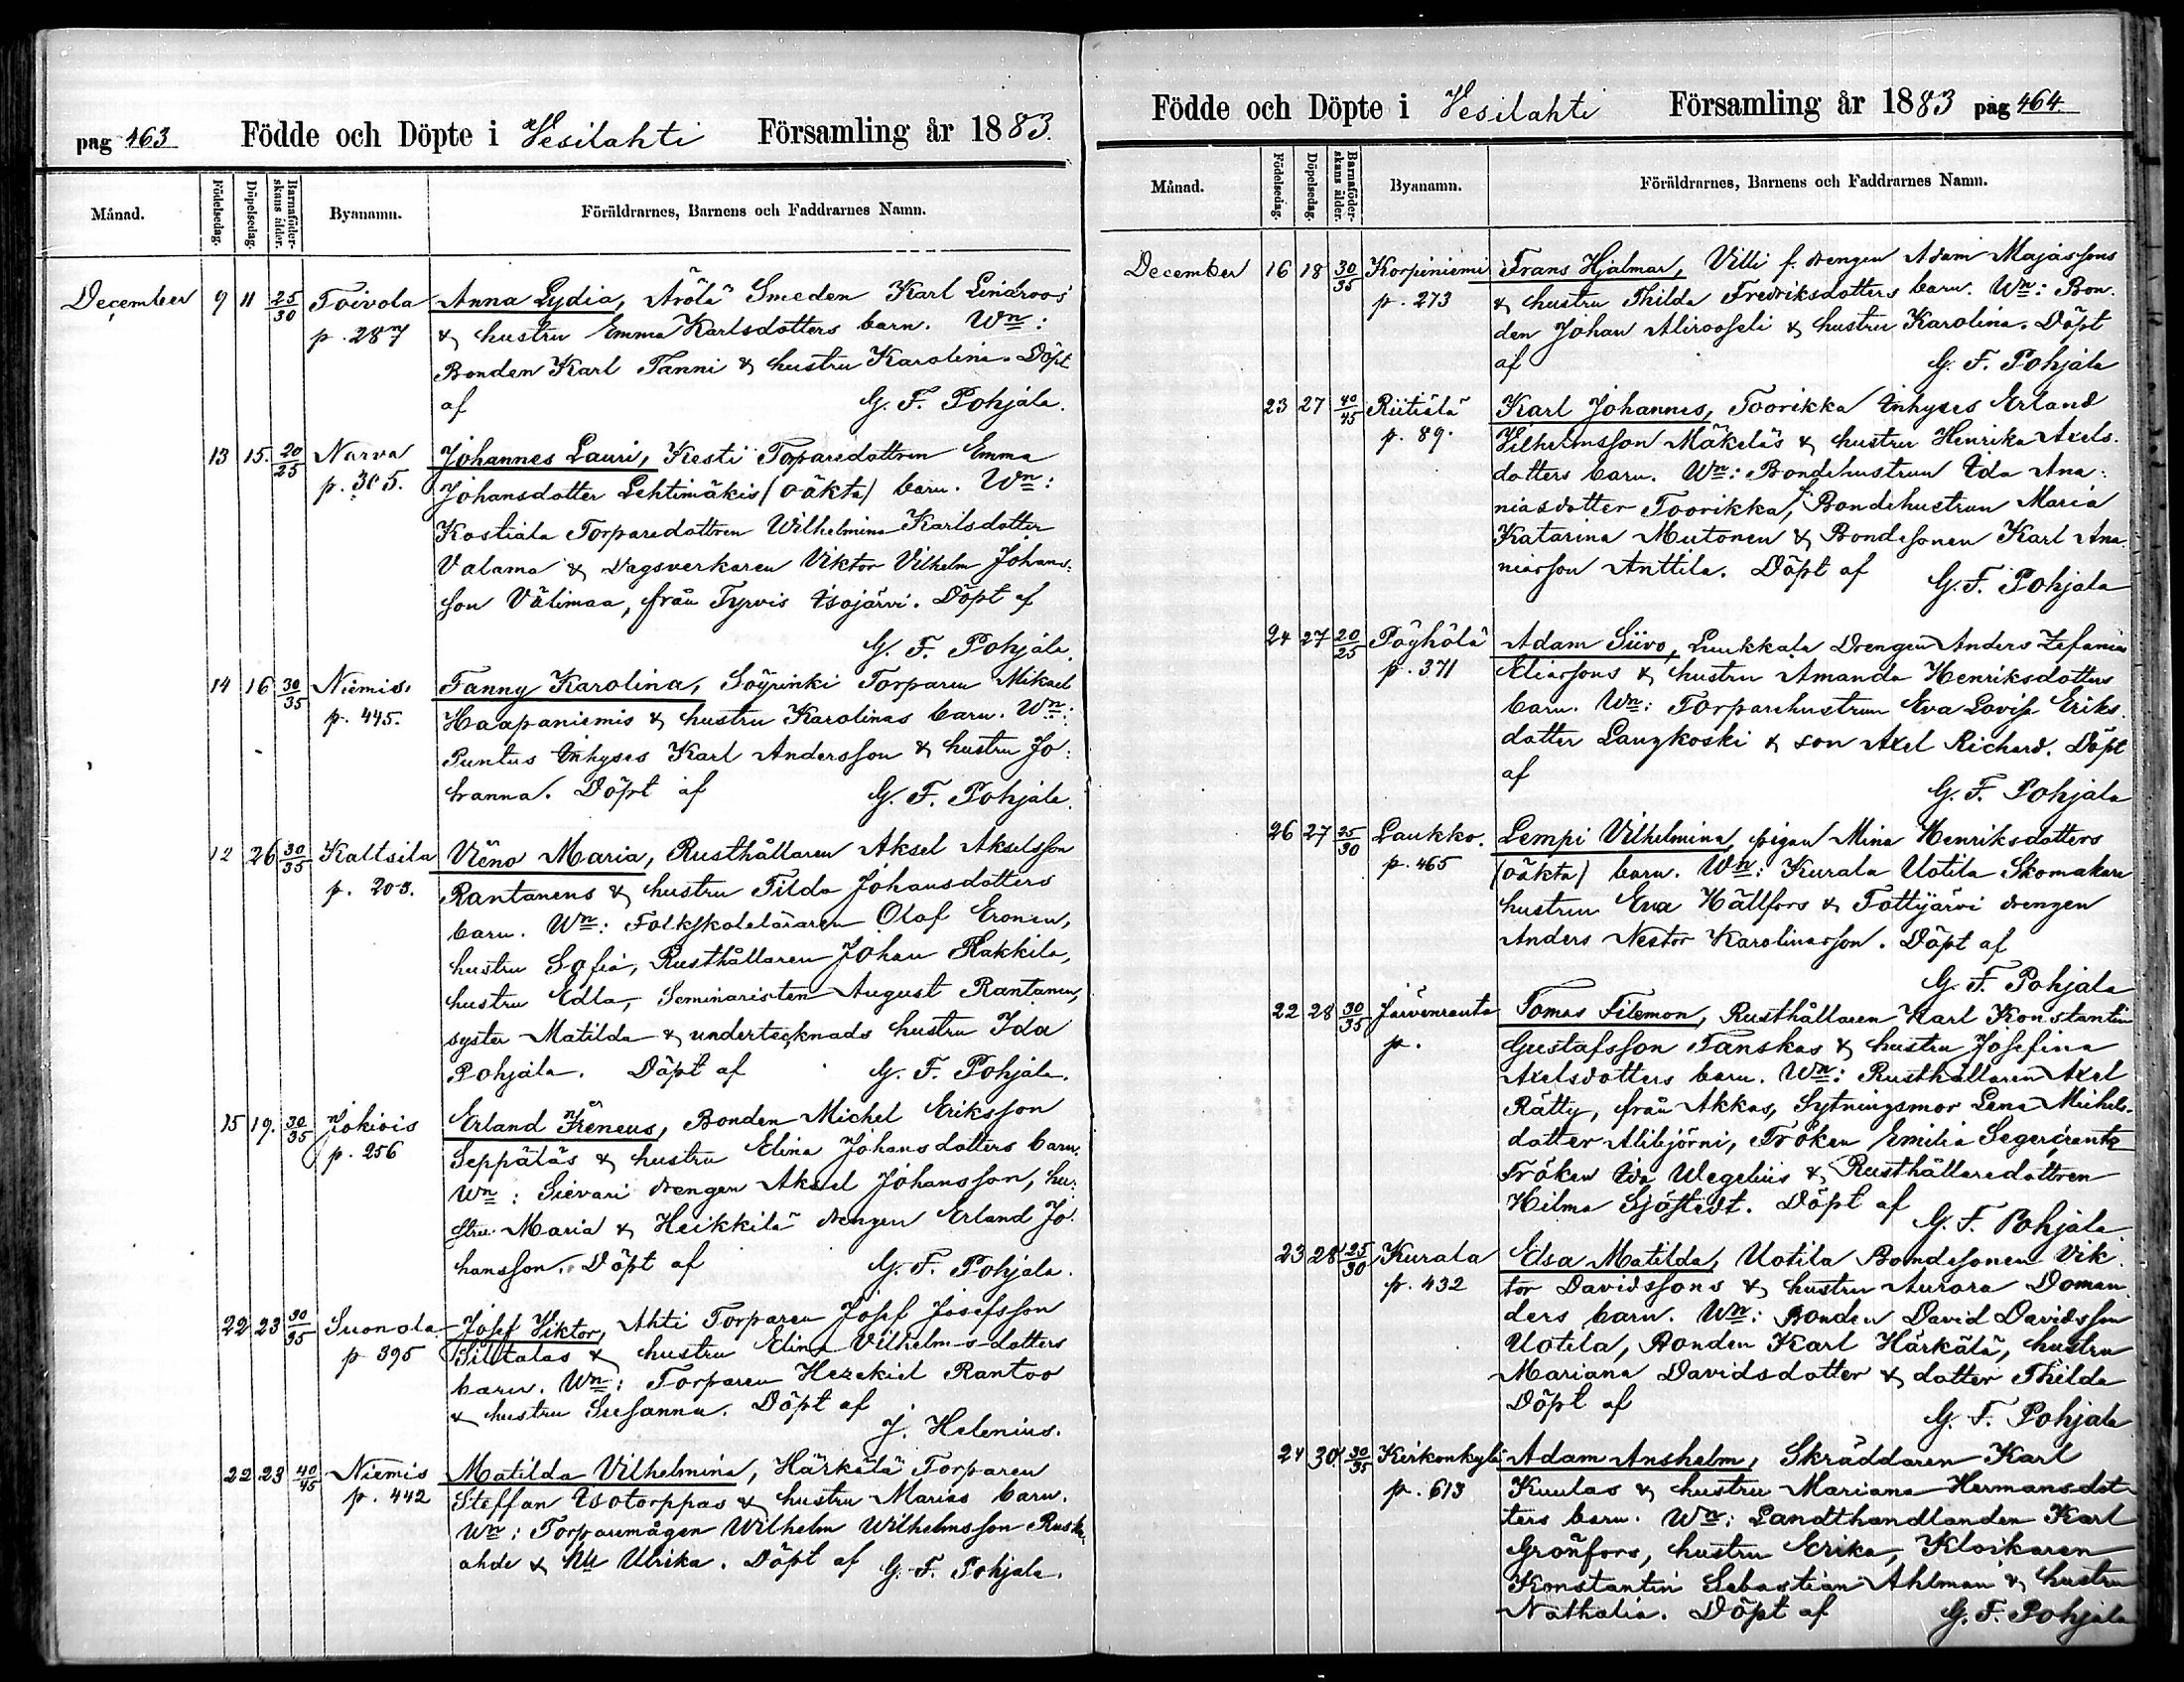 pag 463 Födde och Döpte i Vesilahti Församling år 1883.
Månad. Födelsedag. Döpelsedag. Barnaföderskans ålder. Byanamn. Föräldrarnes, Barnens och Faddrarnes Namn.
December 9 11 25/30 Toivola Anna Lydia, Arölä Smeden Karl Lindroos
p. 287 & hustru Emma Karlsdotters barn. Wn:
Bonden Karl Tanni & hustru Karolina. Döpt
af G. F. Pohjala.
13 15. 20/25 Narva Johannes Lauri, Kesti Torparedottren Emma
p. 305. Johansdotter Lehtimäkis (oäkta) barn. Wn:
Kostiala Torparedottren Wilhelmina Karlsdotter
Valama & Dagsverkaren Viktor Vilhelm Johans-
son Välimaa, från Tyrvis Isojärvi. Döpt af
G. F. Pohjala.
14 16 30/35 Niemis. Fanny Karolina, Söyrinki Torparen Mikael
p. 445. Haapaniemis & hustru Karolinas barn. Wn:
Puntus Inhyses Karl Andersson & hustru Jo-
hanna. Döpt af G. F. Pohjala.
12 26 30/35 Kaltsila Väno Maria, Rusthållaren Aksel Akselsson
p. 203. Rantanens & hustru Tilda Johansdotters
barn. Wn: Folkskoleläraren Olof Eronen,
hustru Sofia, Rusthållaren Johan Rakkila,
hustru Edla, Seminaristen August Rantanen,
syster Matilda & undertecknads hustru Ida
Pohjala. Döpt af G. F. Pohjala.
15 19. 30/35 Jokiois Erland Ireneus, Bonden Michel Eriksson
p. 256 Seppäläs & hustru Elina Johansdotters barn.
Wn: Sievari drengen Aksel Johansson, hu-
stru Maria & Heikkilä drengen Erland Jo-
hansson. Döpt af G. F. Pohjala.
22 23 30/35 Suonola Josef Viktor, Ahti Torparen Josef Josefsson
p 395 Siltalas & hustru Elina Vilhelmsdotters
barn. Wn: Torparen Hezekiel Rantoo
& hustru Susanna. Döpt af
J. Helenius.
22 23 40/45 Niemis Matilda Vilhelmina, Härkälä Torparen
p. 442 Steffan Isotorppas & hustru Marias barn.
Wn: Torparemågen Wilhelm Wilhelmsson Ruska-
ahde & hu Ulrika. Döpt af G. F. Pohjala.
Födde och Döpte i Vesilahti Församling år 1883 pag 464
Månad. Födelsedag. Döpelsedag. Barnaföderskans ålder. Byanamn. Föräldrarnes, Barnens och Faddrarnes Namn.
December 16 18 30/35 Korpiniemi Frans Hjalmar, Villi f. drengen Adam Majassons
p. 273 & hustru Thilda Fredriksdotters barn. Wn: Bon-
den Johan Alirosseli & hustru Karolina. Döpt
af G. F. Pohjala
23 27 40/45 Riitiälä Karl Johannes, Toorikka Inhyses Erland
p. 89. Vilhelmsson Mäkeläs & hustru Henrika Axels-
dotters barn. Wn: Bondehustrun Ida Ana-
niasdotter Toorikka, Bondehustrun Maria
Katarina Mutonen & Bondesonen Karl Ana-
niasson Anttila. Döpt af G. F. Pohjala
24 27 20/25 Pöyhölä Adam Siivo, Luukkala Drengen Anders Zefanias
p. 371 Eliassons & hustru Amanda Henriksdotters
barn. Wn: Torparehustrun Eva Lovisa Eriks-
dotter Laugkoski & son Axel Richard. Döpt
af
G. F. Pohjala
26 27 25/30 Laukko. Lempi Vilhelmina, pigan Mina Henriksdotters
p. 465 (oäkta) barn. Wn: Kurala Uotila Skomakare
hustrun Eva Hällfors & Tottijärvi drengen
Anders Nestor Karolinasson. Döpt af
G. F. Pohjala
22 28 30/35 Järvenranta Tomas Filemon, Rusthållaren Karl Konstantin
p. Gustafsson Tanskas & hustru Josefina
Axelsdotters barn. Wn: Rusthållaren Axel
Rätty, från Akkas, Sytningsmor Lena Michels-
dotter Alibjörni, Fröken Emilia Segercrantz
Fröken Ida Wegelius & Rusthållaredottren
Hilma Sjöstedt. Döpt af
G. F. Pohjala
23 28 25/30 Kurala Elsa Matilda, Uotila Bondesonen Vik-
p. 432 tor Davidssons & hustru Aurora Doman-
ders barn. Wn: Bonden David Davidsson
Uotila, Bonden Karl Härkälä, hustru
Mariana Davidsdotter & dotter Thilda
Döpt af
G. F. Pohjala
24 30 30/35 Kirkonkylä Adam Anshelm, Skräddaren Karl
p. 613 Kuulas & hustru Mariana Hermansdot-
ters barn. Wn: Landthandlanden Karl
Grönfors, hustru Erika, Klockaren
Konstantin Sebastian Ahlman & hustru
Nathalia. Döpt af G. F. Pohjala